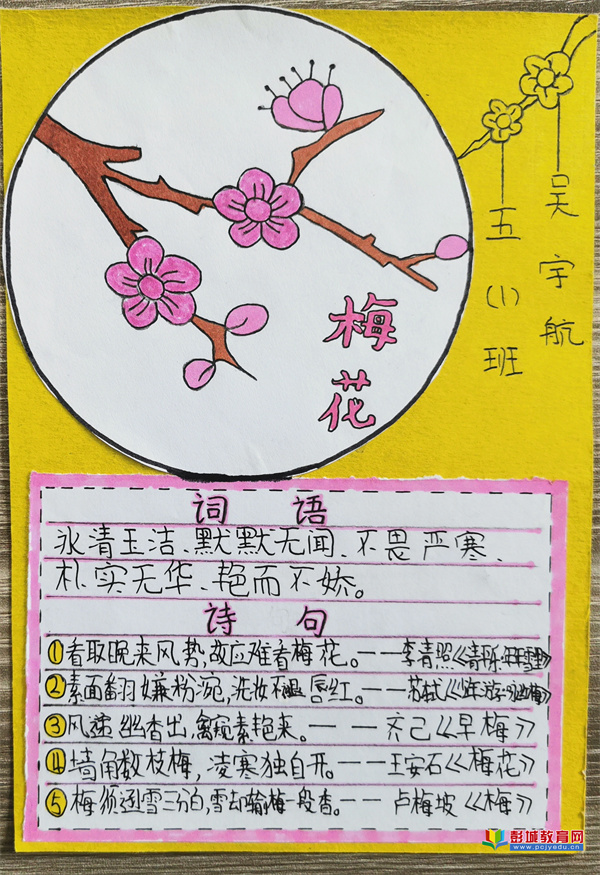 吴宇航
五(1)班
梅花
词 语
冰清玉洁、默默无闻、不畏严寒、
朴实无华、艳而不娇。
诗 句
①看取晚来风势,故应难看梅花。——李清照《清平乐·年年雪里》
②素面翻嫌粉涴,洗妆不退唇红。——苏轼《
③风递幽香出,禽窥素艳来。——齐己《早梅》
④墙角数枝梅,凌寒独自开。——王安石《梅花》
⑤梅须逊雪三分白,雪却输梅一段香。——卢梅坡《梅》
彭城教育网
www.pcjyedu.cn